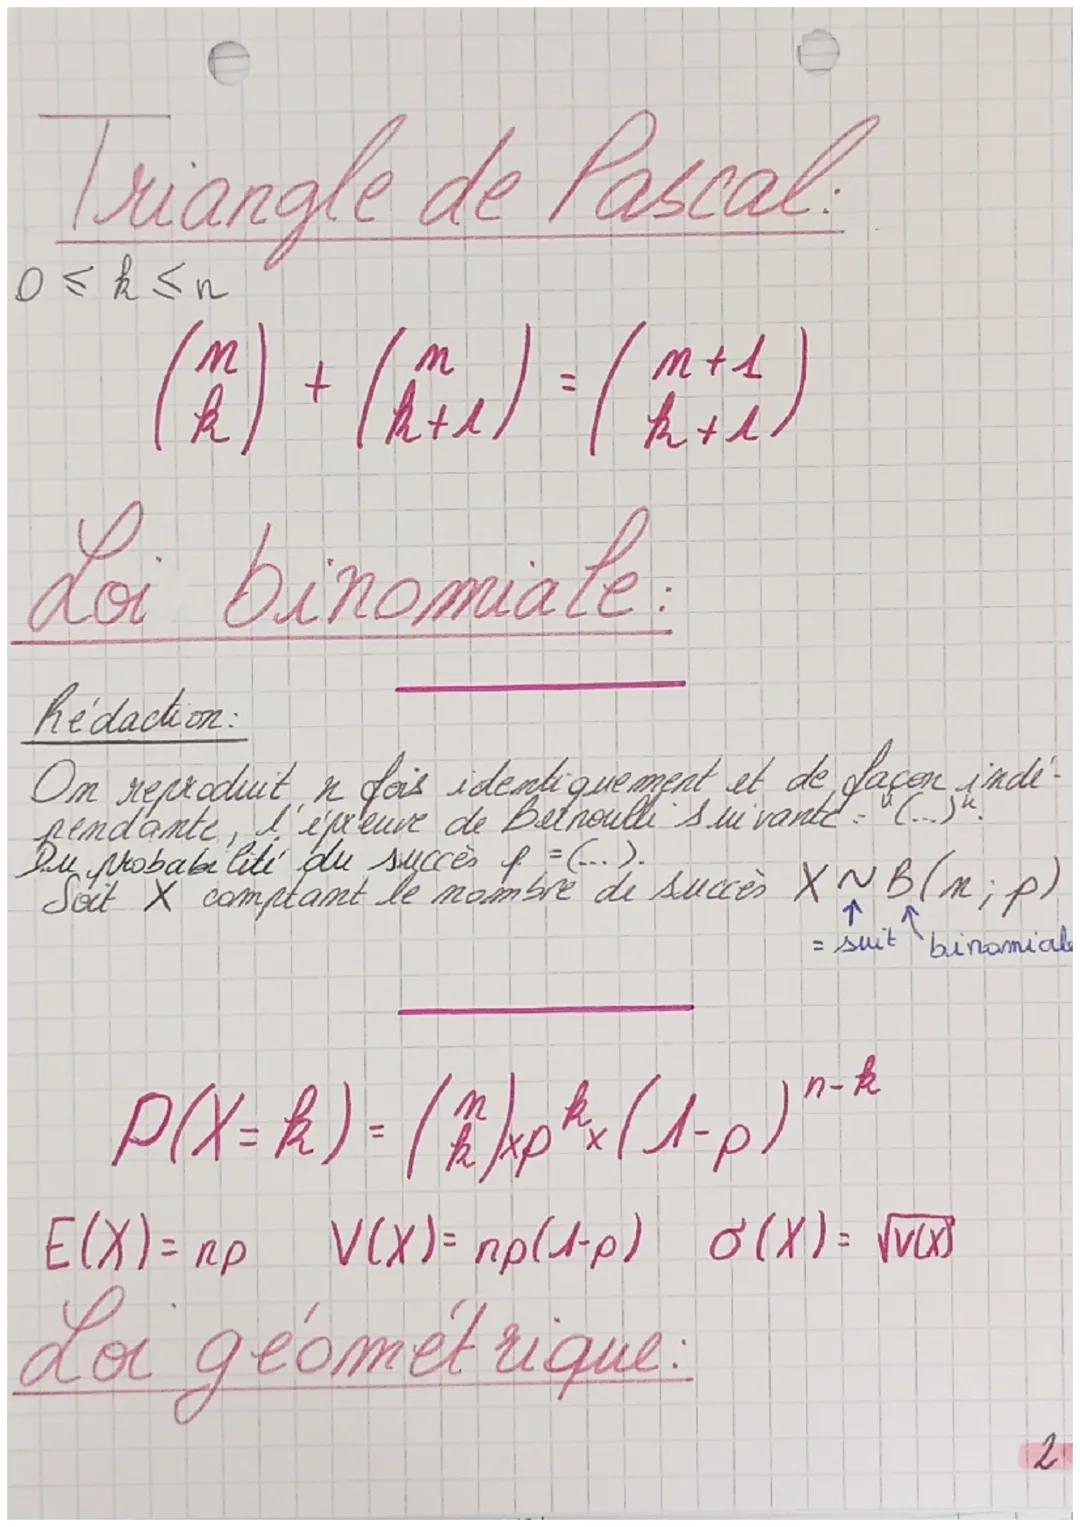 Triangle de Pascal:
0 ≤ k ≤ n
(n k) + (n k+1) = (n+1 k+1)
Loi binomiale:
Rédaction:
On reproduit n fois identiquement et de façon indé-
pendante, l'épreuve de Bernoulli suivante: "(...)".
Du probabilité du succès p = (...).
Soit X comptant le nombre de succès X ~ B(n; p)
↑ ↑
= suit binomiale
P(X=k) = (n k) × p^k × (1-p)^n-k
E(X) = np V(X) = np(1-p) σ(X) = √V(X)
Loi géométrique:
2